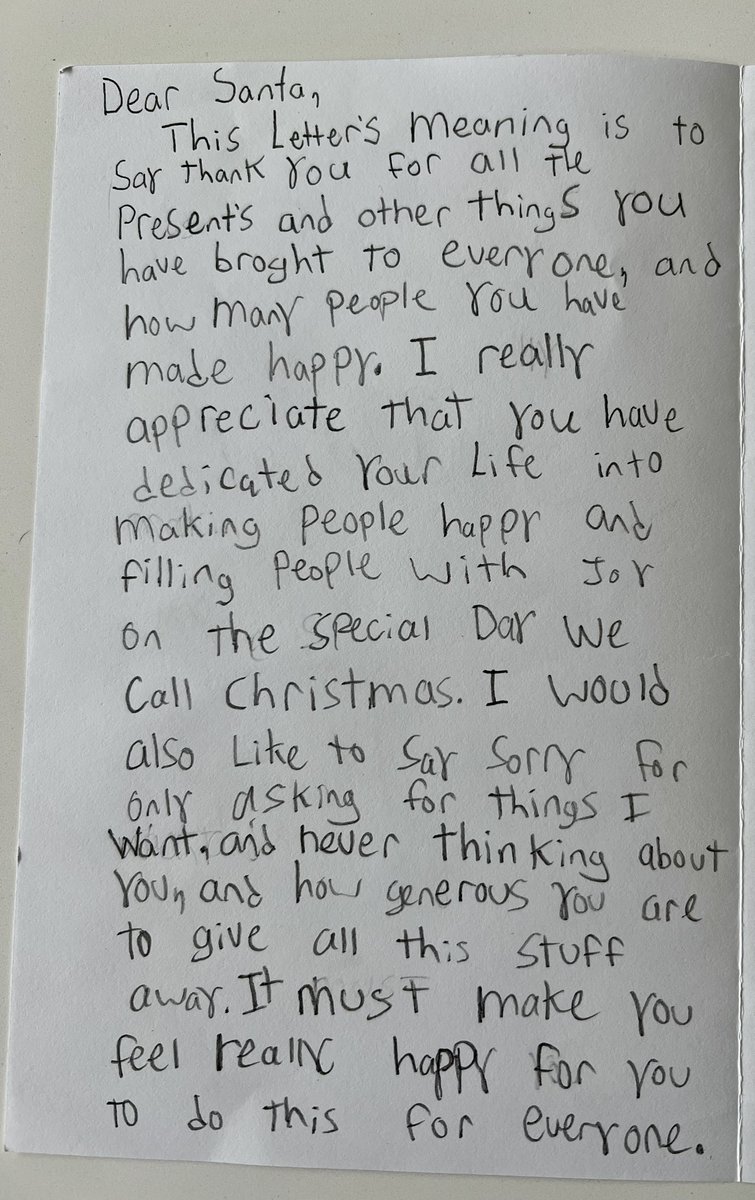 Dear Santa,
This Letter's meaning is to
Say thank you for all the
Present's and other things you
have broght to everyone, and
how many people you have
made happy. I really
appreciate that you have
dedicated your Life into
making people happy and
filling people with Joy
on the special Day we
Call Christmas. I would
also Like to say sorry for
only asking for things I
want, and never thinking about
you, and how generous you are
to give all this stuff
away. It must make you
feel really happy for you
to do this for everyone.